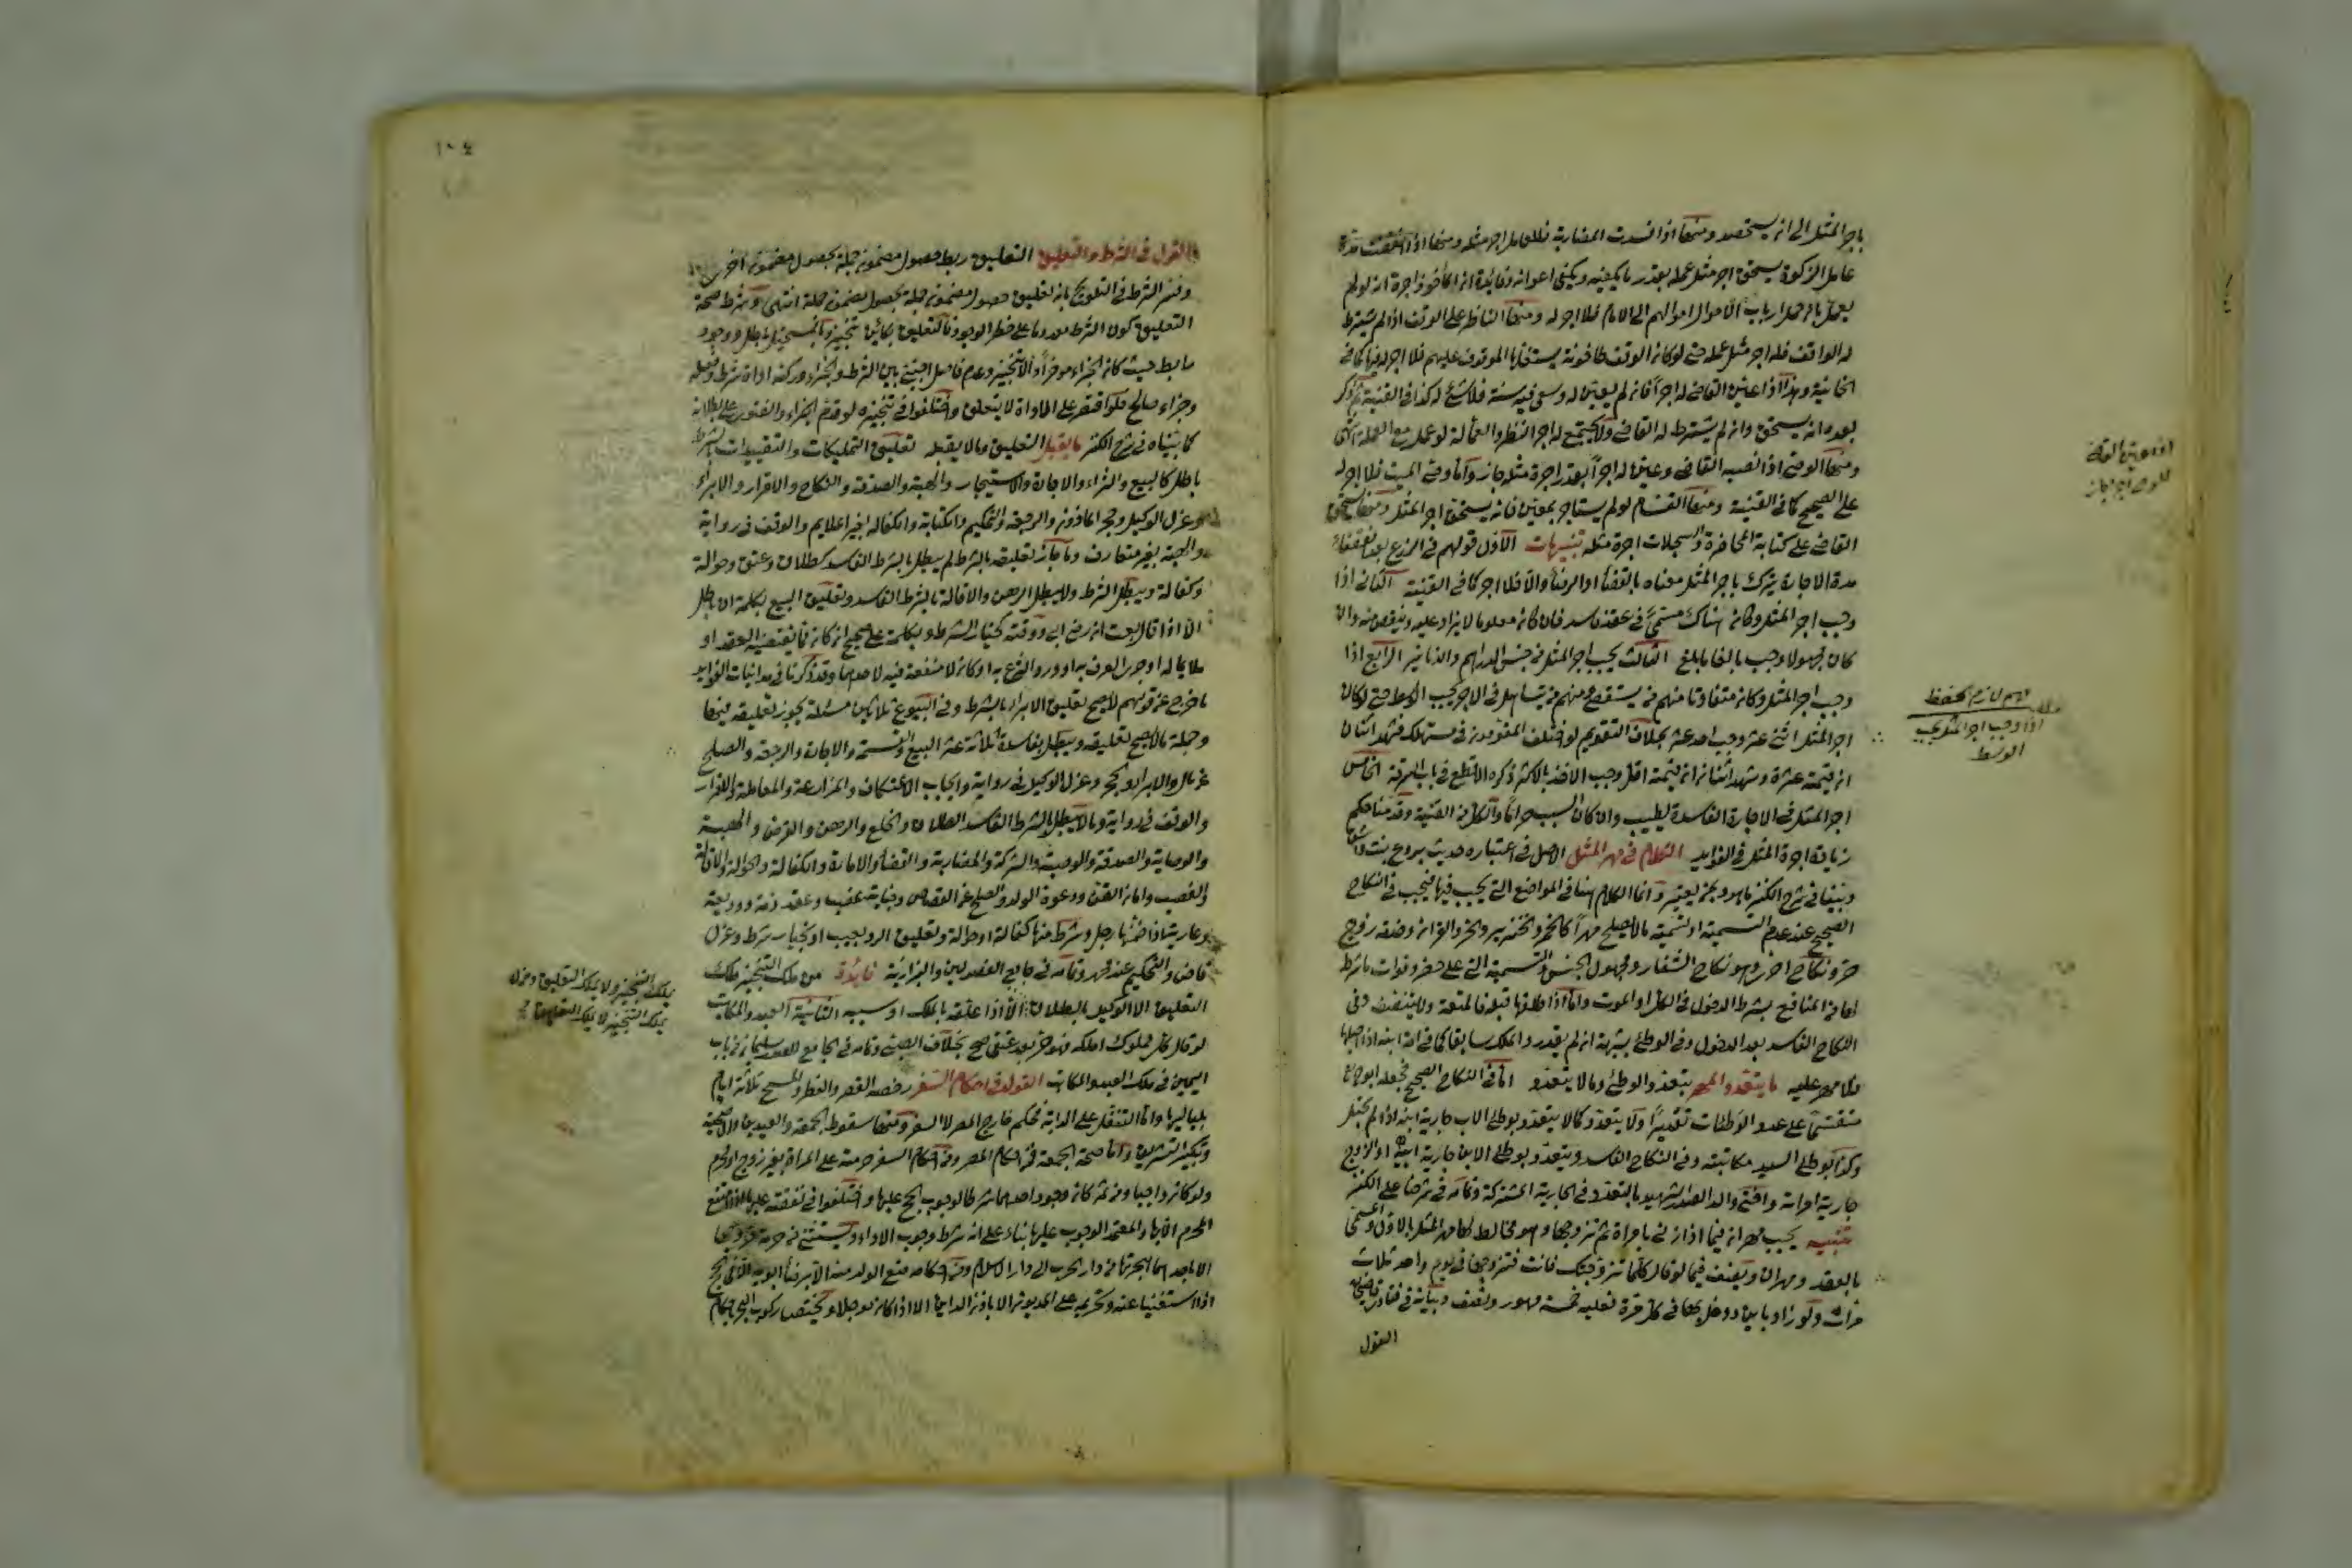 باجر المثل الى انه يستحقه ومنها اذا فسدت المضاربة فللعامل اجر مثله ومنها
عامل الزكوة يستحق اجر مثل عمله بقدر ما يكفيه ويكفى اعوانه وفائدة ان المأخوذ اجرة انه لو لم
يعمل بان حمل ارباب الاموال اموالهم الى الامام فلا اجر له ومنها الناظر على الوقف اذا لم يشترط
له الواقف فله اجر مثل عمله حتى لو كان الوقف طاحونة يستغلها الموقوف عليهم فلا اجر له فيها كما فى
الخانية وهذا اذا عين القاضى له اجرا فان لم يعين له وسعى فيه سنة فلا شئ له كذا فى القنية ثم ذكر
بعده انه يستحق وان لم يشترط له القاضى ولا يجتمع له اجر النظر والعمالة لو عمل مع العملة انتهى
ومنها الوصى اذا نصبه القاضى وعين له اجرا بقدر اجرة مثله جاز واما وصى الميت فلا اجر له
على الصحيح كما فى القنية ومنها القسام لو لم يستاجر بمعين فانه يستحق اجر المثل ومنها يستحق
القاضى على كتابة المحاضر والسجلات اجرة مثله تنبيهات الاول قولهم فى الزرع بعد انقضاء
مدة الاجارة يترك باجر المثل معناه بالقضاء او الرضا والا فلا اجر كما فى القنية الثانى اذا
وجب اجر المثل وكان هناك مسمى فى عقد فاسد فان كان معلوما لا يزاد عليه وينقص منه وان
كان مجهولا وجب بالغا ما بلغ الثالث يجب اجر المثل من جنس الدراهم والدنانير الرابع اذا
وجب اجر المثل وكان متفاوتا منهم من يستقصى ومنهم من يتساهل فى الاجر يجب الوسط حتى لو كان
اجر المثل اثنى عشر وجب احد عشر بخلاف التقويم لو اختلف المقومون فى مستهلك فشهد اثنان
ان قيمته عشرة وشهد اثنان ان قيمته اقل وجب الاخذ بالاكثر ذكره الاقطع فى باب السرقة الخامس
اجر المثل فى الاجارة الفاسدة يطيب وان كان السبب حراما والكل من القنية وقدمنا حكم
زيادة اجرة المثل فى الفوايد الكلام فى مهر المثل الاصل فى اعتباره حديث بروع بنت واشق
وبينا فى شرح الكنز ما هو وبمن يعتبر وانما الكلام هنا فى المواضع التى يجب فيها فيجب فى النكاح
الصحيح عند عدم التسمية او تسمية ما لا يصلح مهرا كالخمر والخنزير والحر والقران وخدمة زوج
حر ونكاح اخرى وهو نكاح الشغار ومجهول الجنس والتسمية التى على خطر وفوات ما شرط
لها من المنافع بشرط الدخول فى الكل او الموت واما اذا طلقها قبله فالمتعة ولا يتنصف وفى
النكاح الفاسد بعد الدخول وفى الوطئ بشبهة ان لم يقدر والملك سابقا كما فى امة ابنه اذا احبلها
فلا مهر عليه ما يتعدد المهر بتعدد الوطئ وما لا يتعدد اما فى النكاح الصحيح فجعله ابو
منقسما على عدد الوطئات تقديرا ولا يتعدد كما لا يتعدد بوطئ الاب جارية ابنه اذا لم تحبل
وكذا بوطئ السيد مكاتبته وفى النكاح الفاسد ويتعدد بوطئ الابن جارية ابيه او الزوج
جارية امرأته وافتى والد الصدر الشهيد بالتعدد فى الجارية المشتركة وتمامه فى شرحنا على الكنز
تنبيه يجب مهران فيما اذا زنى بامراة ثم تزوجها وهو مخالط لها مهر المثل بالاول والمسمى
بالعقد ومهران ونصف فيما لو قال كلما تزوجتك فانت فتزوجها فى يوم واحد ثلاث
مرات ولو زاد باين ودخل بها فى كل مرة فعليه خمسة مهور ونصف وبيانه فى فتاوى
القول
اذا عين القاضى
للوصى اجرا جاز
مهم لازم الحفظ
اذا وجب اجر المثل يجب
الوسط
١٠٤
القول فى الشرط والتعليق التعليق ربط حصول مضمون جملة بحصول مضمون اخرى
وفسر الشرط فى التلويح بانه تعليق حصول مضمون جملة بحصول مضمون جملة انتهى وشرط صحة
التعليق كون الشرط معدوما على خطر الوجود فالتعليق بكائن تنجيز وبالمستحيل باطل ووجود
رابط حيث كان الجزاء مؤخرا والا تنجيز وعدم فاصل اجنبى بين الشرط والجزاء وركنه اداة شرط وفعله
وجزاء صالح فلو اقتصر على الاداة لا يتعلق واختلفوا فى تنجيزه لو قدم الجزاء والفتوى على بطلانه
كما بيناه فى شرح الكنز ما يقبل التعليق وما لا يقبله تعليق التمليكات والتقييدات بالشرط
باطل كالبيع والشراء والاجارة والاستيجار والهبة والصدقة والنكاح والاقرار والابراء
وعزل الوكيل وحجر الماذون والرجعة والتحكيم والكتابة والكفالة بغير الملايم والوقف فى رواية
والهبة بغير متعارف وما جاز تعليقه بالشرط لم يبطل بالشرط الفاسد كطلاق وعتق وحوالة
وكفالة ويبطل الشرط ولا يبطل الرهن والاقالة بالشرط الفاسد وتعليق البيع بكلمة ان باطل
الا اذا قال بعت ان رضى ابى ووقته كخيار الشرط وبكلمة على صحيح ان كان مما يقتضيه العقد او
ملايما له او جرى العرف به او ورد الشرع به او كان لا منفعة فيه لاحدهما وقد ذكرنا فى مداينات الفوايد
ما خرج عن قولهم لا يصح تعليق الابراء بالشرط وفى البيوع ثلاثين مسئلة يجوز تعليقه فيها
وجملة ما لا يصح تعليقه ويبطل بفاسده ثلاثة عشر البيع والقسمة والاجارة والرجعة والصلح
عن مال والابراء والحجر وعزل الوكيل فى رواية وايجاب الاعتكاف والمزارعة والمعاملة والاقرار
والوقف فى رواية وما لا يبطل بالشرط الفاسد الطلاق والخلع والرهن والقرض والهبة
والوصاية والصدقة والوصية والشركة والمضاربة والقضاء والامارة والكفالة والحوالة والاقالة
والغصب وامان القن ودعوة الولد والصلح عن القصاص وجناية غصب وعقد ذمة ووديعة
وعارية اذا ضمنها رجل وشرط منها كفالة او حوالة وتعليق الرد بعيب او بخيار شرط وعزل
قاض والتحكيم عند محمد وتمامه فى جامع الفصولين والبزازية فايدة من ملك التنجيز ملك
التعليق الا الوكيل بالطلاق الا اذا علقه بالملك او سببه الثانية العبد والمكاتب
لو قال كل مملوك املكه فهو حر بعد عتقى صح بخلاف الصبى وتمامه فى الجامع للصدر سليمان فى باب
اليمين فى ملك العبد والمكاتب القول فى احكام السفر رخصه القصر والفطر والمسح ثلاثة ايام
بلياليها واما التنفل على الدابة فحكم خارج المصر لا السفر ومنها سقوط الجمعة والعيدين والاضحية
وتكبير التشريق واما صحة الجمعة فمن احكام المصر ومن احكام السفر حرمته على المراة بغير زوج او محرم
ولو كان واجبا ومن ثم كان وجود احدهما شرطا لوجوب الحج عليها واختلفوا فى نفقته عليها اذا امتنع
المحرم الا بها والمعتمد الوجوب عليها بناء على انه شرط وجوب الاداء ويستثنى من حرمة خروجها
الا باحدهما الهجرة من دار الحرب الى دار الاسلام ومن احكامه منع الولد منه الا برضا ابويه الا فى الحج
اذا استغنيا عنه وتحريمه على المديون الا باذن الداين الا اذا كان مؤجلا ويختص ركوب البحر باحكام
يملك التنجيز ولا يملك التعليق ومن لا
يملك التنجيز لا يملك التعليق